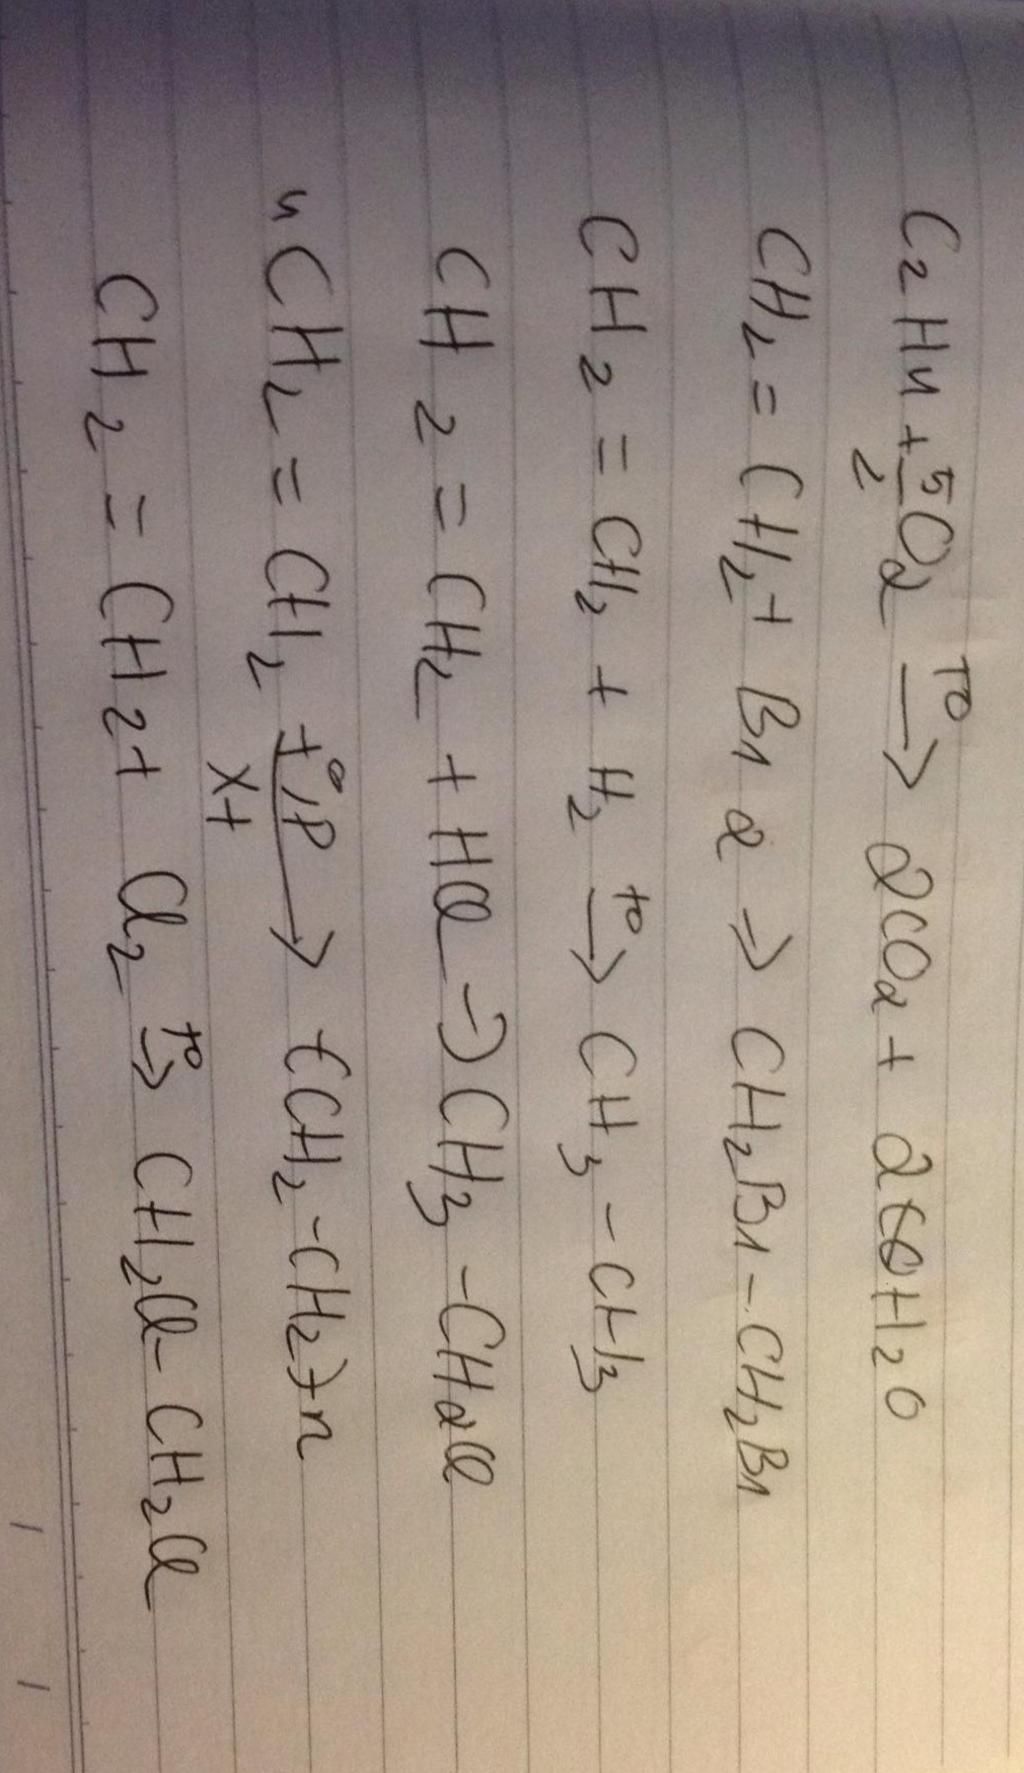 C₂H₄ + 5/2 O₂ →(t°) 2CO₂ + 2H₂O
CH₂ = CH₂ + Br₂ → CH₂Br - CH₂Br
CH₂ = CH₂ + H₂ →(t°) CH₃ - CH₃
CH₂ = CH₂ + HCl → CH₃ - CH₂Cl
nCH₂ = CH₂ →(t°, P / xt) (CH₂ - CH₂)n
CH₂ = CH₂ + Cl₂ →(t°) CH₂Cl - CH₂Cl